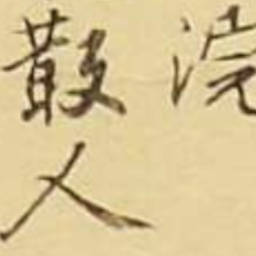 浣
散人